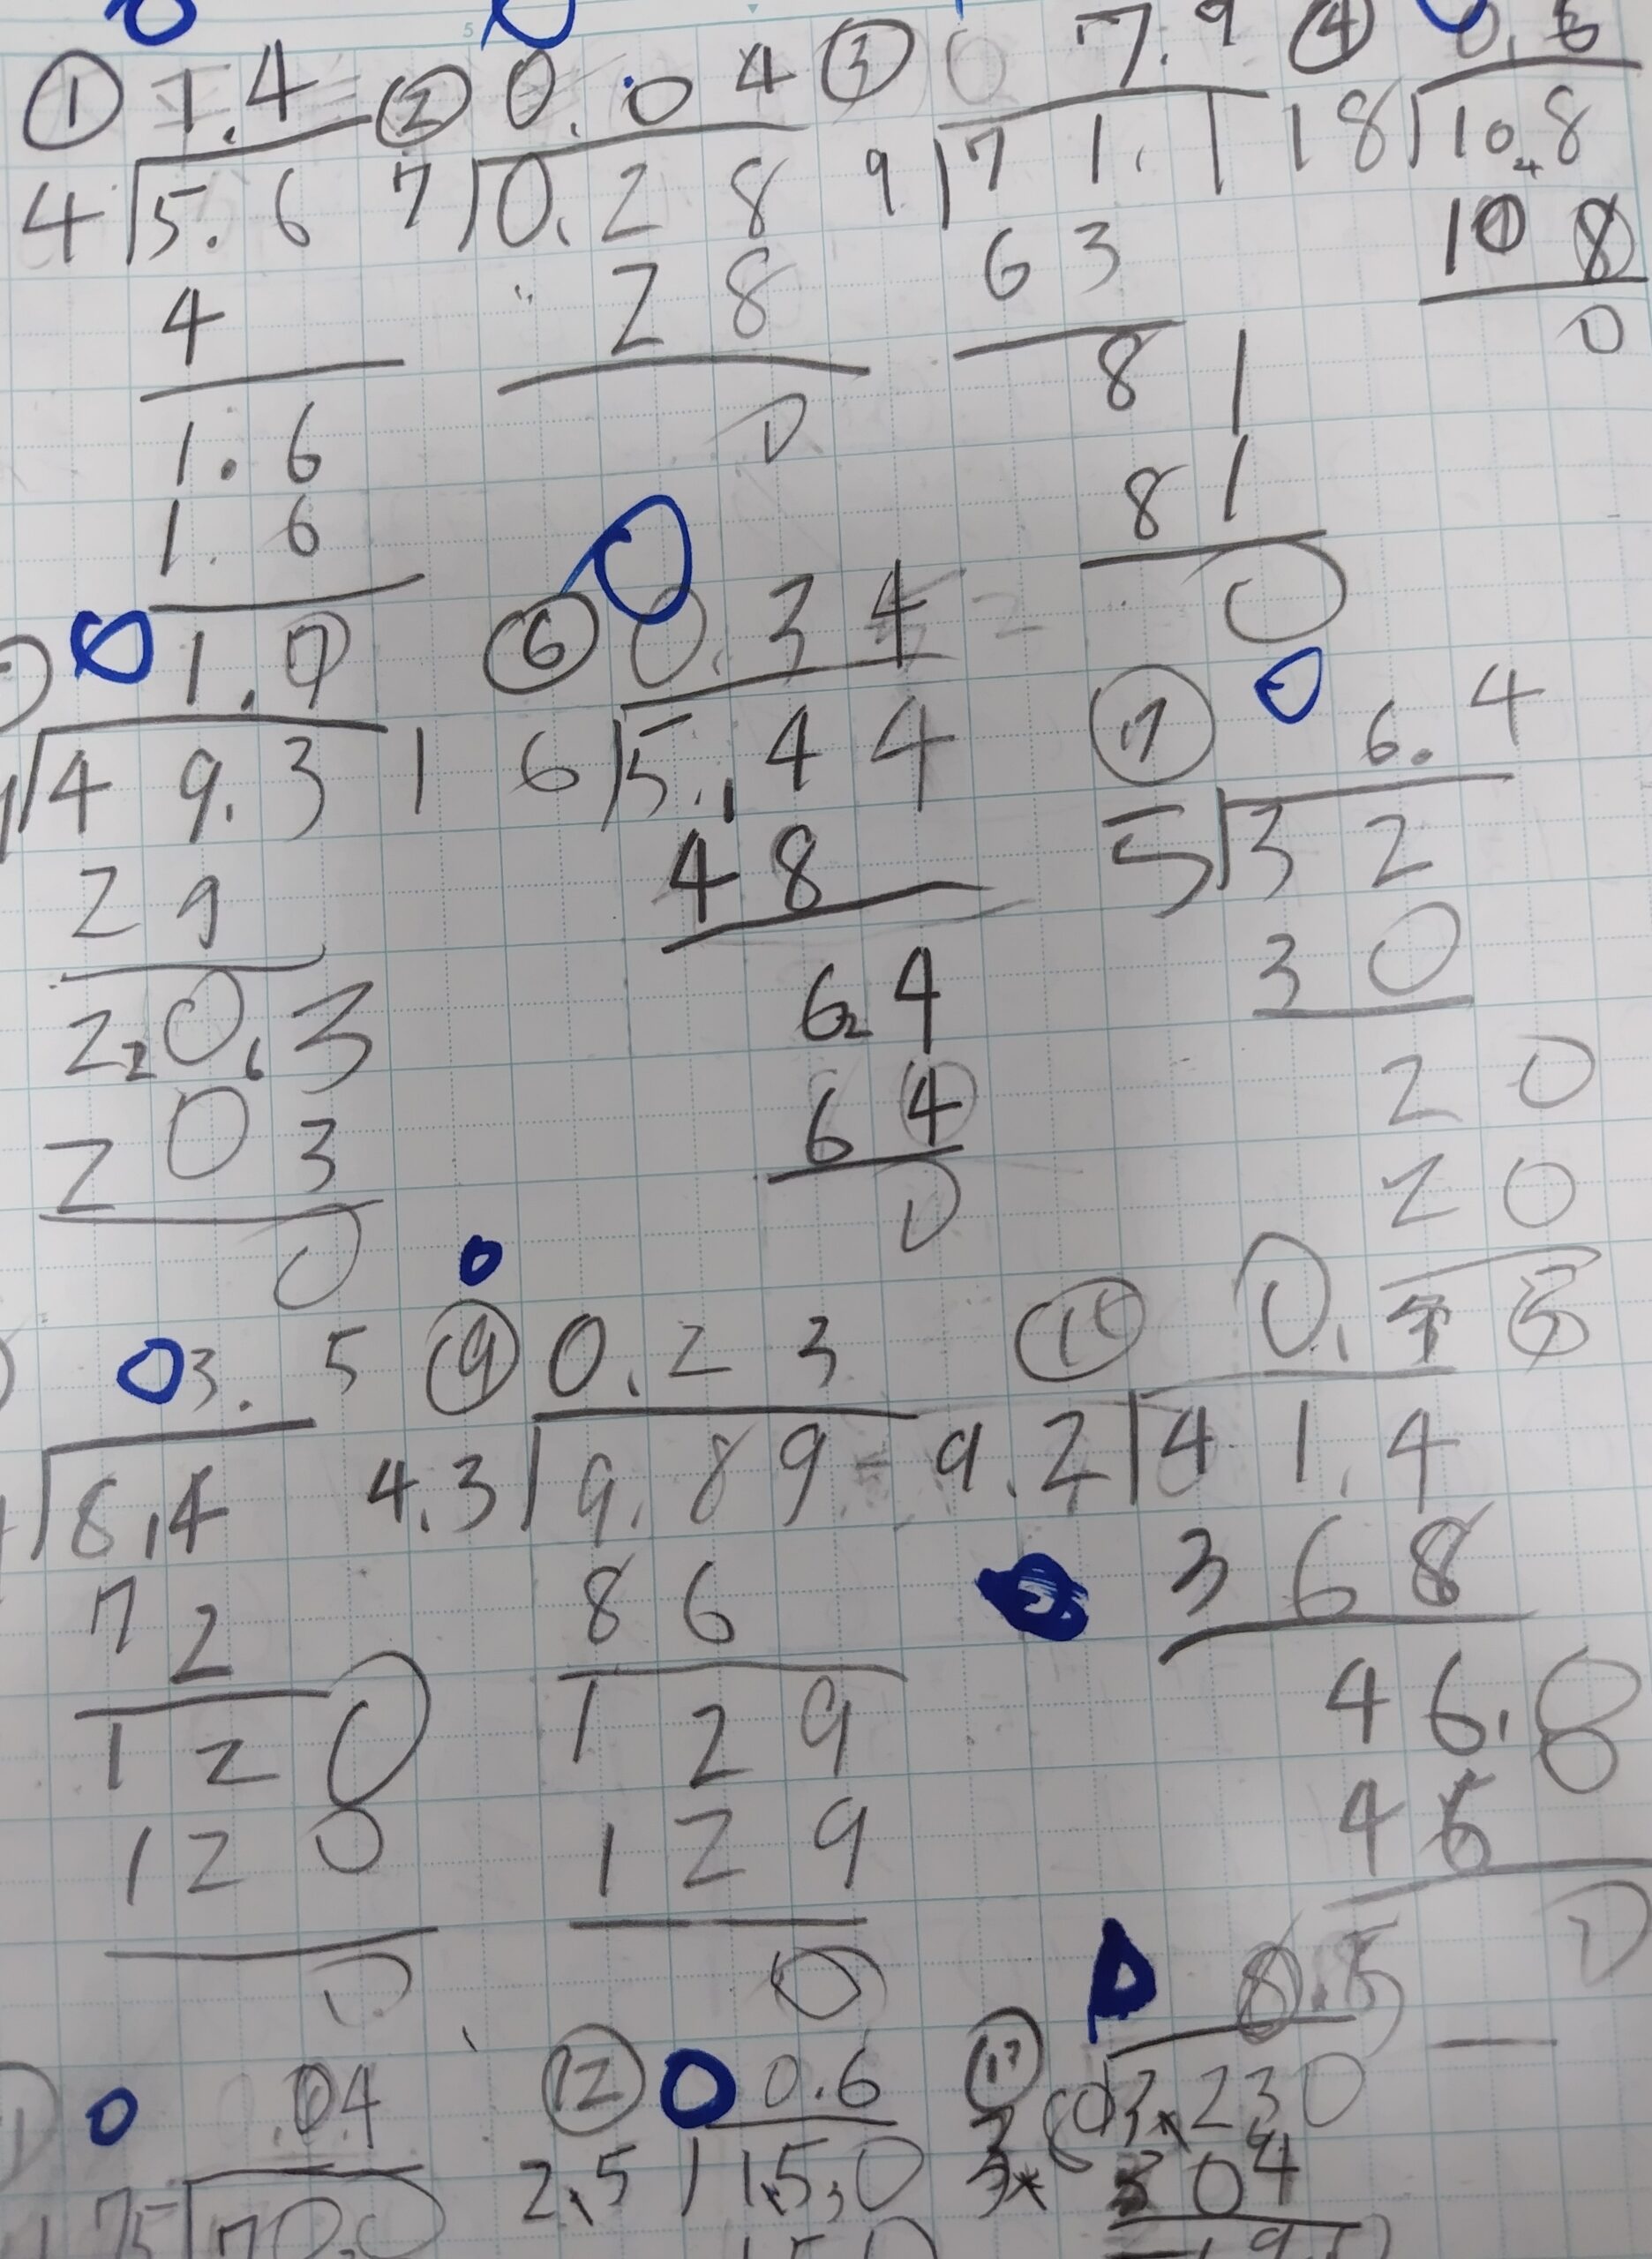 ① 1.4
4)5.6
4
1.6
1.6
② 0.04
7)0.28
28
0
③ 7.9
9)71.1
63
81
81
0
④ 0.6
18)10.8
108
0
1.7
49.3
29
20.3
203
0
⑥ 0.34
16)5.44
48
64
64
0
⑦ 6.4
5)32
30
20
20
3.5
8.4
72
120
120
0
⑨ 0.23
4.3)9.89
86
129
129
0
0. 5
9.2)41.4
368
46.0
46
0
0.04
75)70.0
⑫ 0.6
2.5)1.5.0
8.5
3.230
304